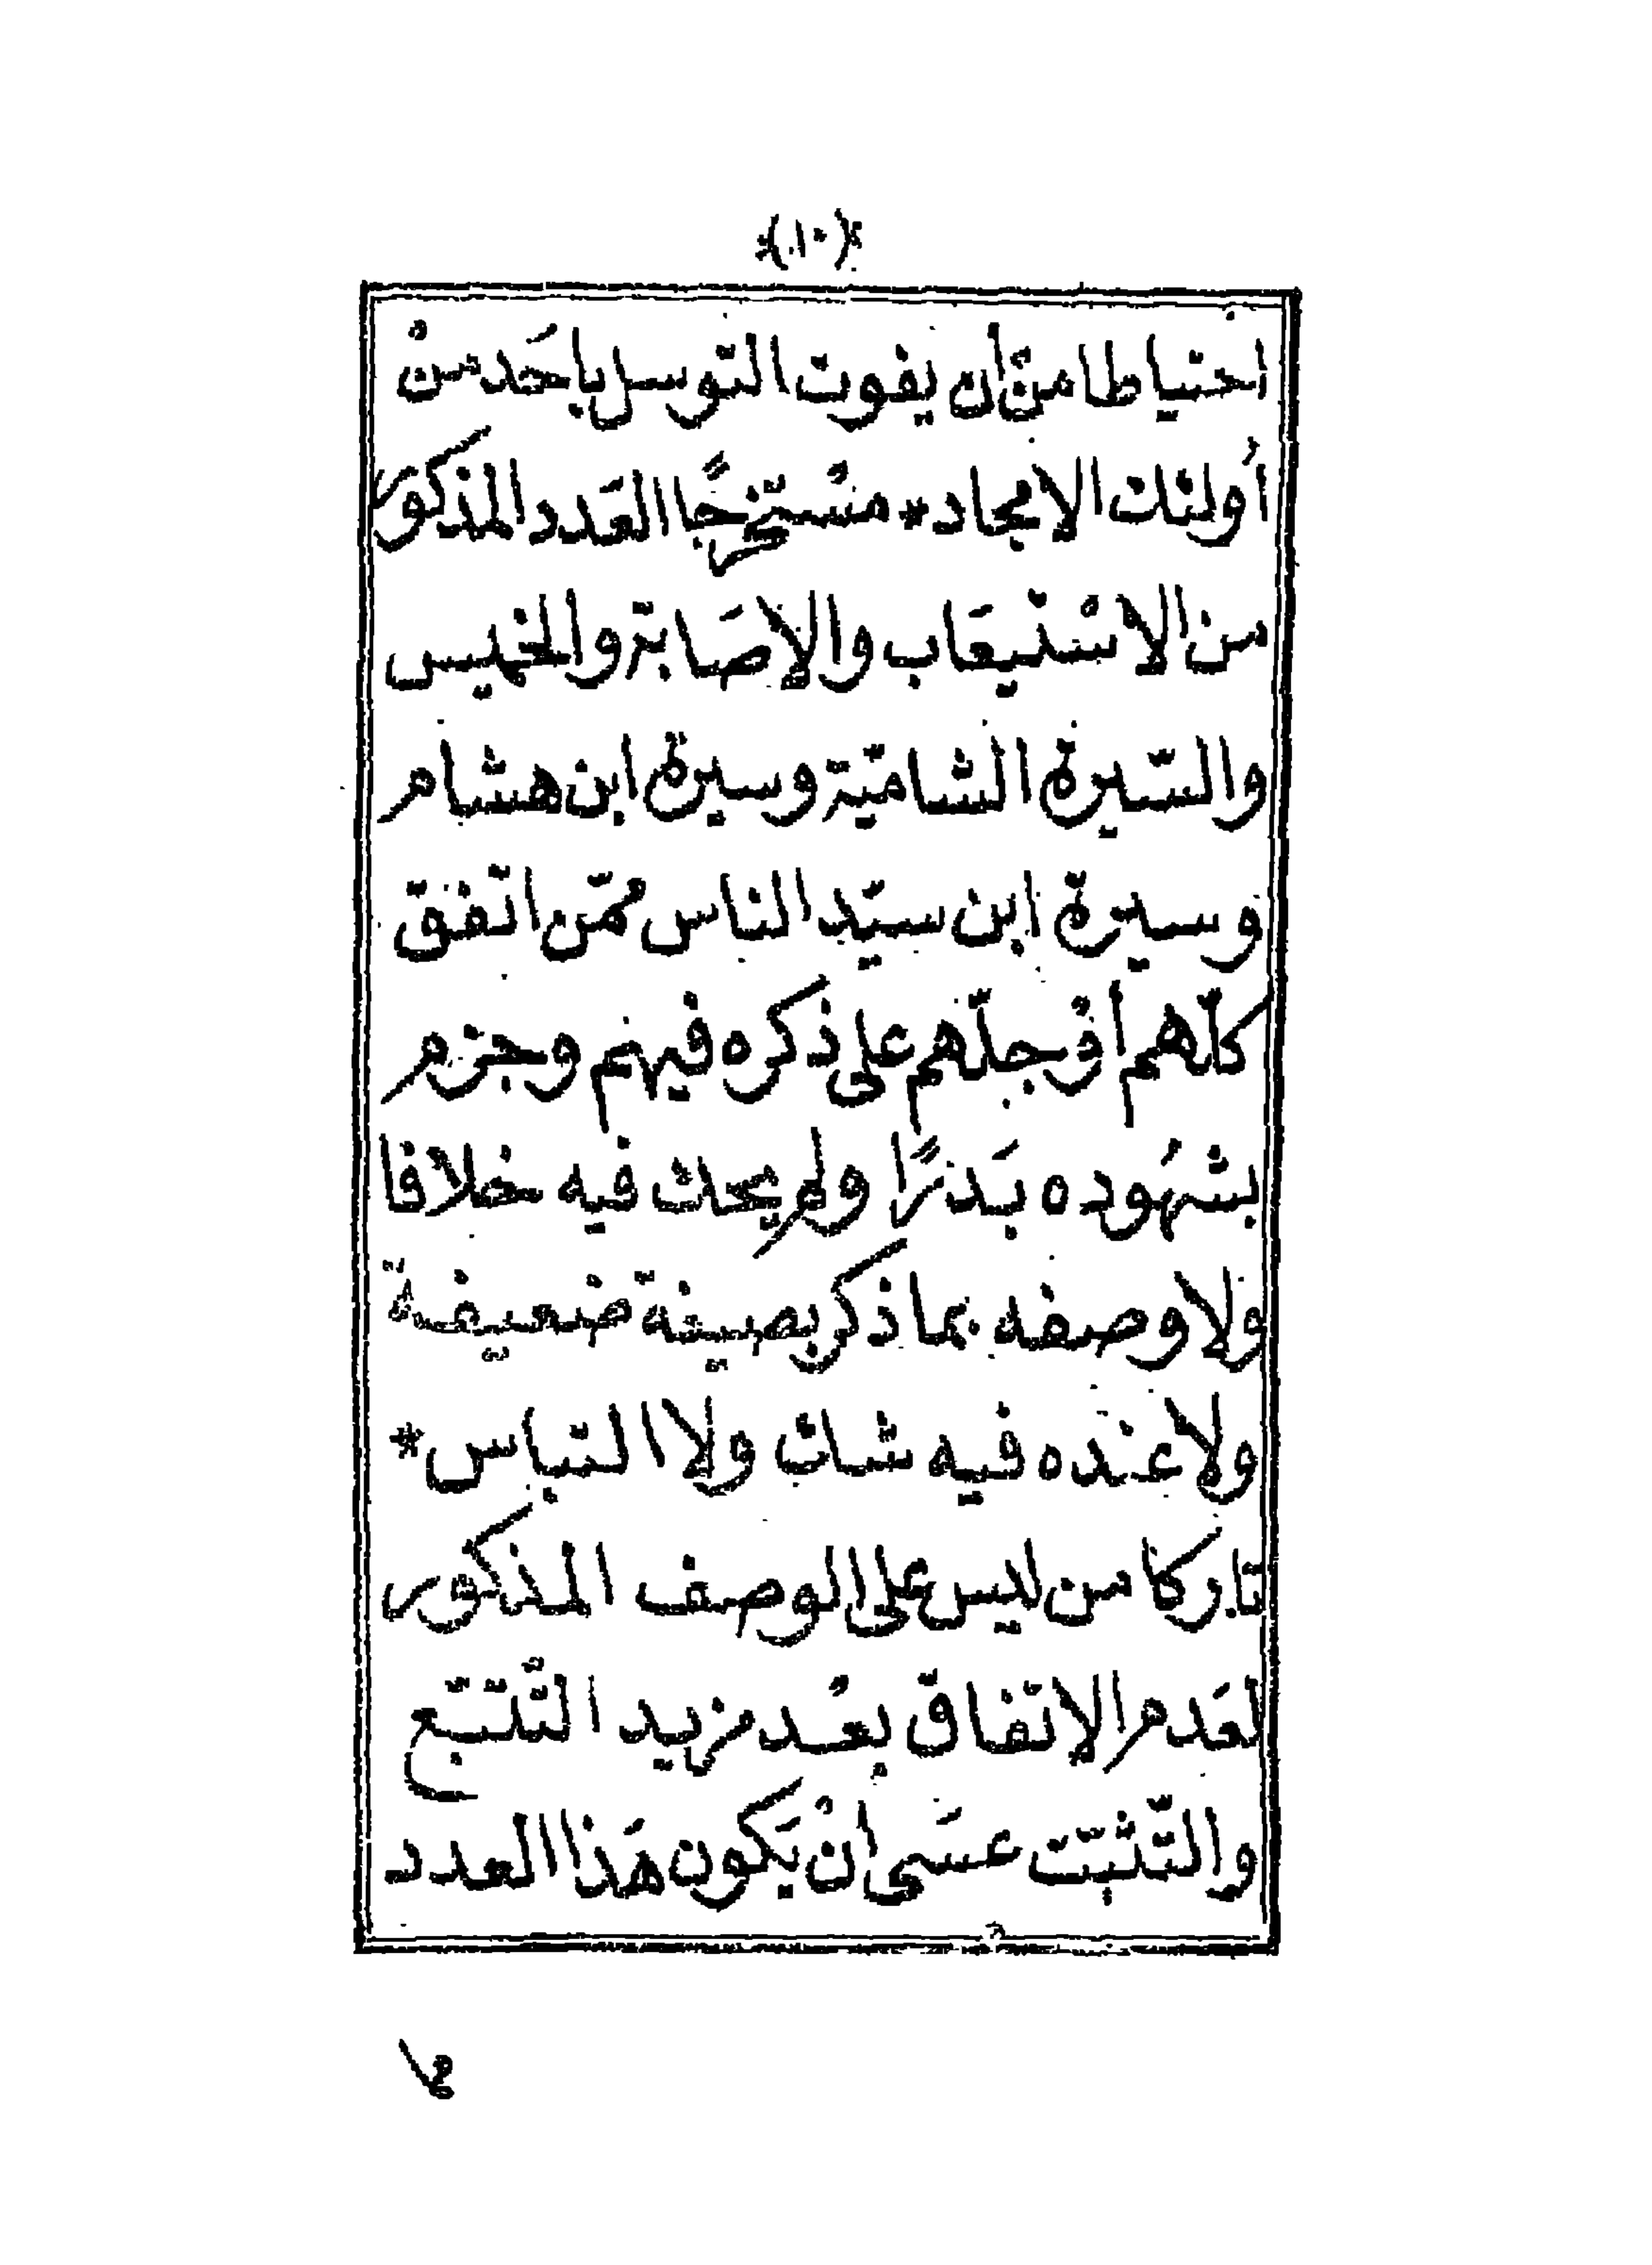 (١٠)
احتياطا من أن يفوت التّوسل باحَد منْ
أولئك الامجاد * مسُتخرْجًا العَدد المذكور
من الاسْتيعَاب والإصَابة والخميس
والسّيرة الشاميّة وسيرة ابن هشام
وسيرة ابن سيّد الناس ممّن اتّفق
كلّهم أوْ جلّهم على ذكره فيهم وجزم
بشهُوده بَدرًا ولم يحك فيه خلافا
ولا وصفه بما ذكر بصيغة ضعيفة
ولا عنده فيه شك ولا التباس *
تاركا من ليس على الوصف المذكور
لعَدم الاتفاق بعْد مزيد التّتبّع
والتّثبّت عسَى انْ يَكون هَذا العدد